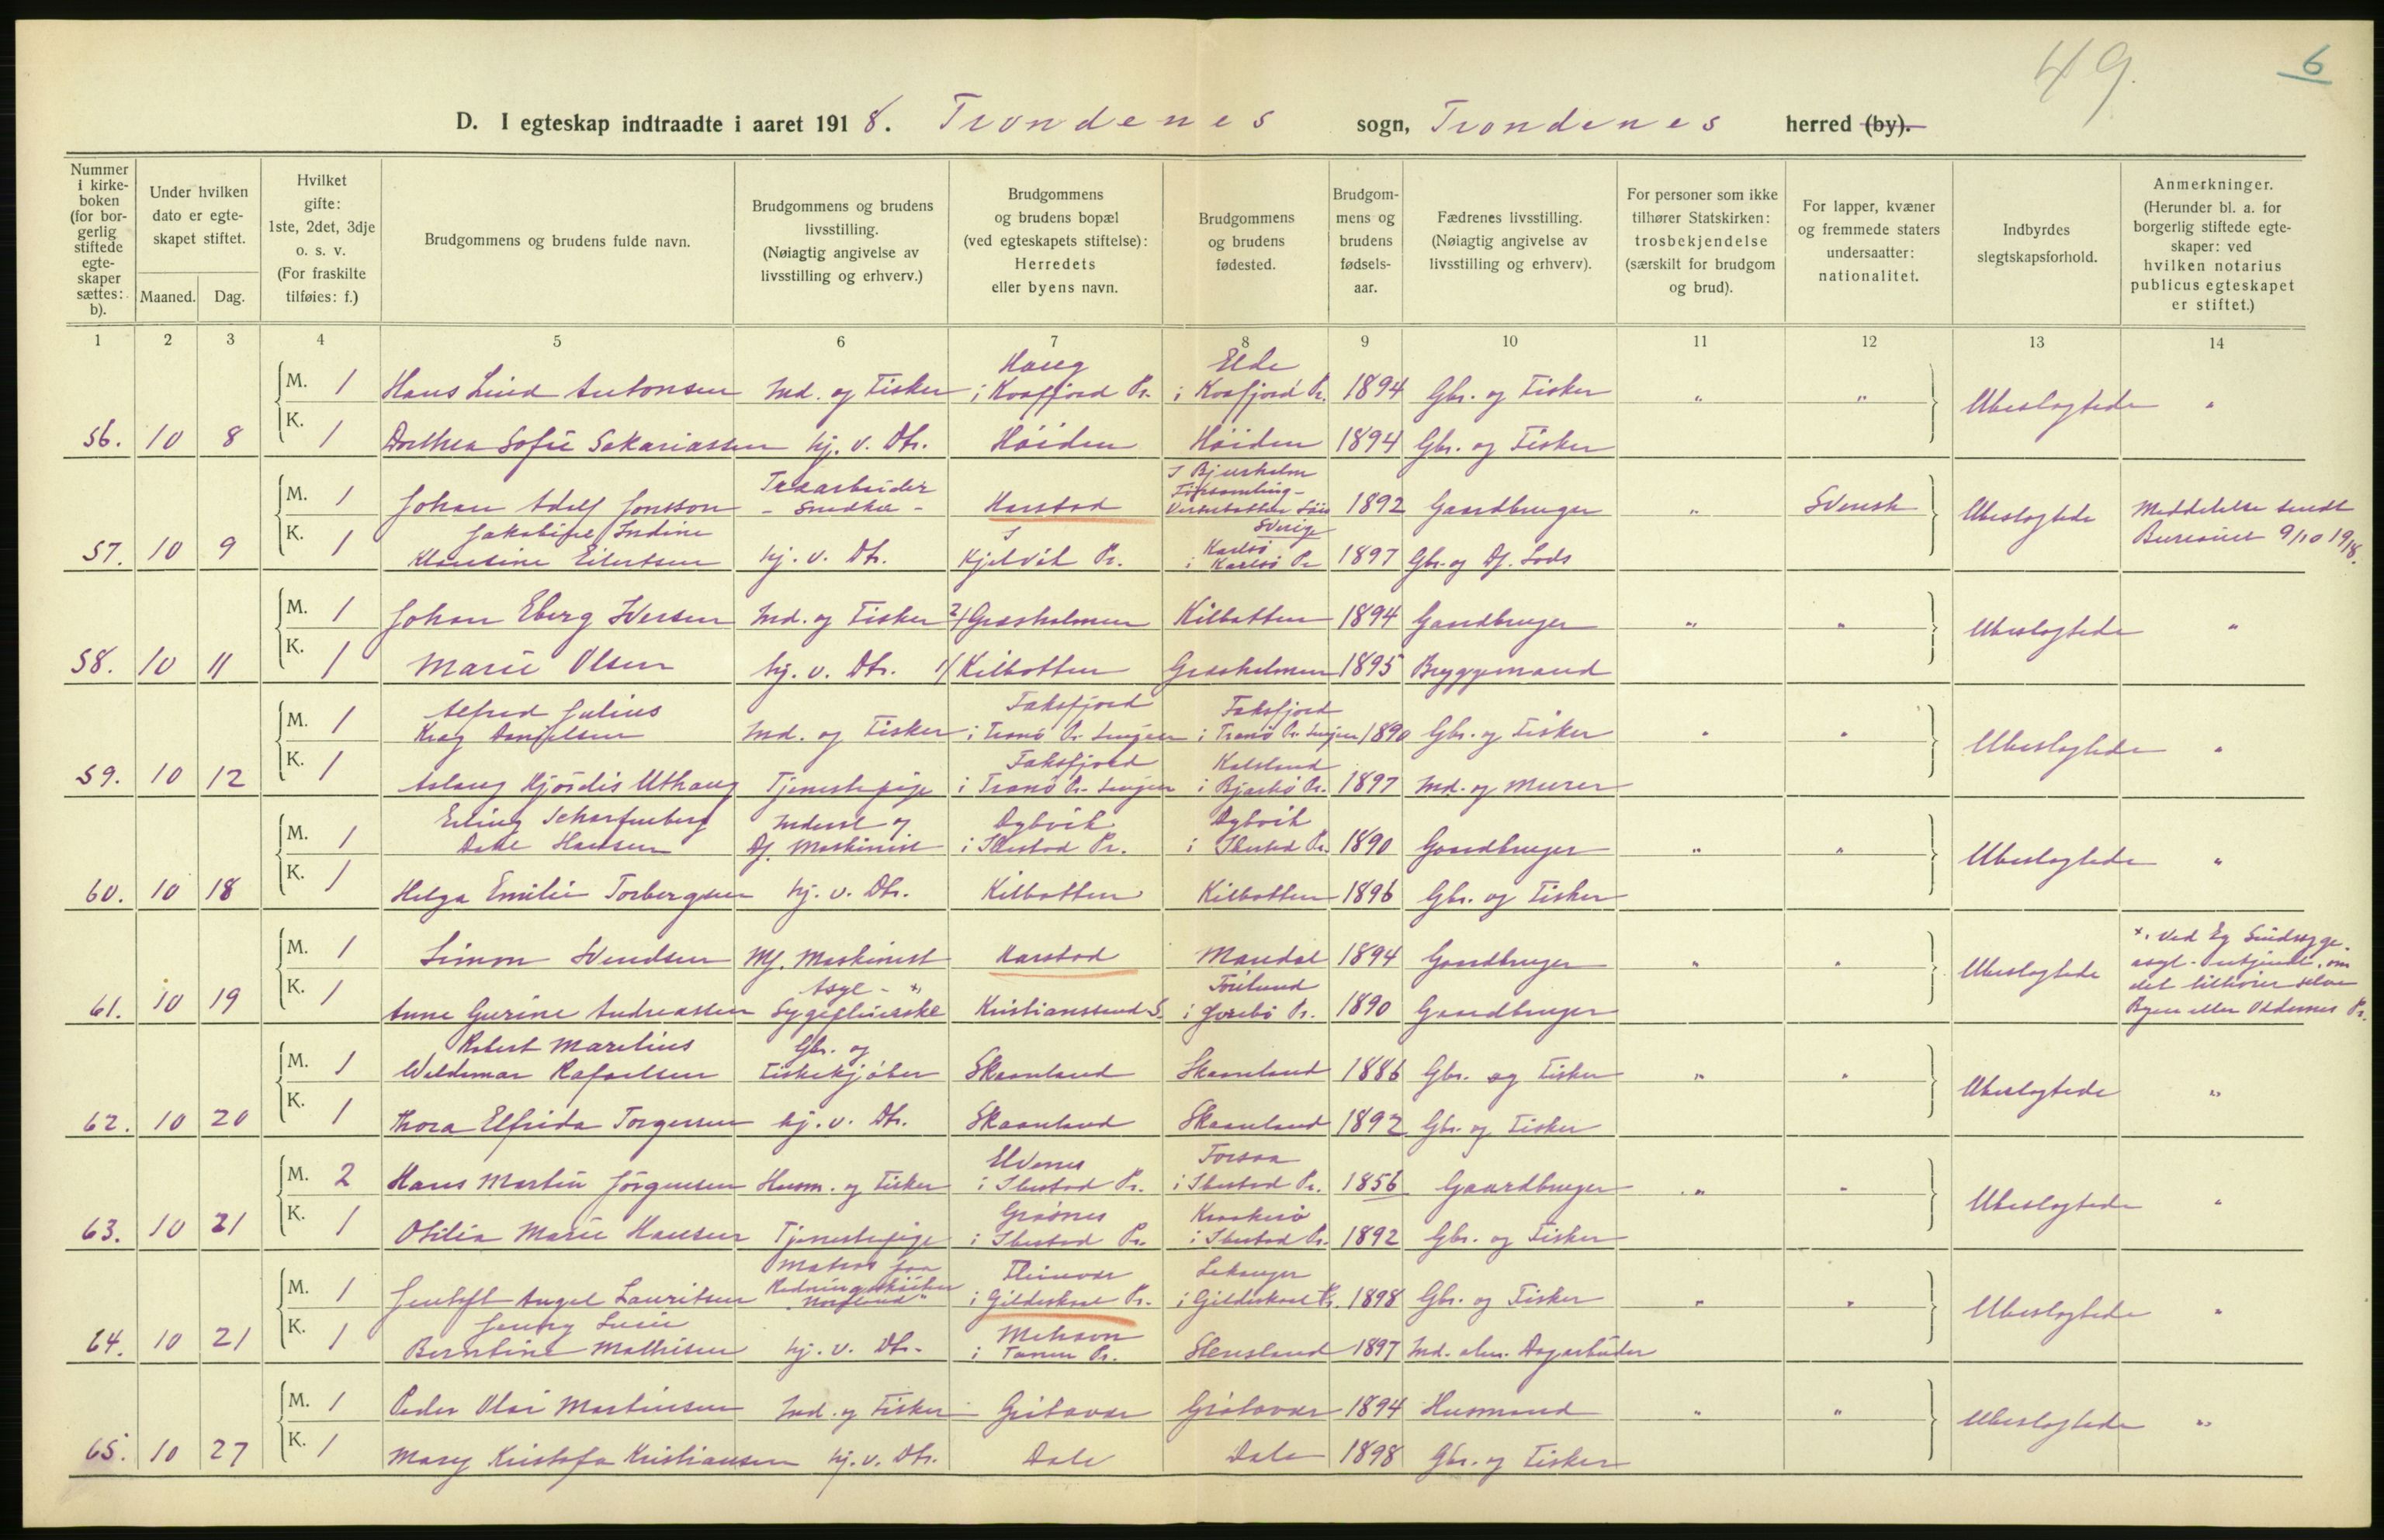 49.
6
D. I egteskap indtraadte i aaret 1918. Trondenes sogn, Trondenes herred (by).
Nummer i kirkeboken (for borgerlig stiftede egteskaper sættes: b).
Under hvilken dato er egteskapet stiftet.
Maaned. Dag.
Hvilket gifte: 1ste, 2det, 3dje o. s. v. (For fraskilte tilføies: f.)
Brudgommens og brudens fulde navn.
Brudgommens og brudens livsstilling. (Nøiagtig angivelse av livsstilling og erhverv.)
Brudgommens og brudens bopæl (ved egteskapets stiftelse): Herredets eller byens navn.
Brudgommens og brudens fødested.
Brudgommens og brudens fødselsaar.
Fædrenes livsstilling. (Nøiagtig angivelse av livsstilling og erhverv).
For personer som ikke tilhører Statskirken: trosbekjendelse (særskilt for brudgom og brud).
For lapper, kvæner og fremmede staters undersaatter: nationalitet.
Indbyrdes slegtskapsforhold.
Anmerkninger. (Herunder bl. a. for borgerlig stiftede egteskaper: ved hvilken notarius publicus egteskapet er stiftet.)
1 2 3 4 5 6 7 8 9 10 11 12 13 14
M. 1 Hans Lind Antonsen Ind. og Fisker Haug i Kvæfjord Pr. Elde i Kvæfjord Pr. 1894 Gbr. og Fisker " " Ubeslægtede "
56. 10 8 K. 1 Dorthea Sofie Sakariassen hj. v. Dtr. Höiden Höiden 1894 Gbr. og Fisker
M. 1 Johan Adolf Jonsson Træarbeider - Snedker - Harstad I Bjurholm Församling - Sverige 1892 Gaardbruger " Svensk Ubeslægtede Meddelelse sendt
57. 10 9 K. 1 Jakobine Indine Klausine Eilertsen hj. v. Dtr. I Kjelvik Pr. Karlsö i Karlsö Pr 1897 Gbr. og Df. Lods Bureauet 9/10 1918.
M. 1 Johan Eberg Iversen Ind. og Fisker 2/ Græsholmen Kilbotten 1894 Gaardbruger " " Ubeslægtede "
58. 10 11 K. 1 Marie Olsen hj. v. Dtr. 1/ Kilbotten Græsholmen 1895 Bryggemand
M. 1 Alfred Julius Krag Danielsen Ind. og Fisker Faksfjord i Tranö Pr. Senjen Faksfjord i Tranö Pr. Senjen 1890 Gbr. og Fisker " " Ubeslægtede "
59. 10 12 K. 1 Aslaug Hjördis Uthaug Tjenestepige Faksfjord i Tranö Pr. Senjen i Bjarkö Pr. 1897 Ind. og Murer
M. 1 Erling Scharfenberg Dahl Hansen Inderst og Df. Maskinist Dybvik i Ibestad Pr. Dybvik i Ibestad Pr. 1890 Gaardbruger " " Ubeslægtede "
60. 10 18 K. 1 Helga Emilie Torbergsen hj. v. Dtr. Kilbotten Kilbotten 1896 Gbr. og Fisker
M. 1 Simon Svendsen Mf. Maskinist Harstad Mandal 1894 Gaardbruger " " Ubeslægtede x. Ved Eg Sindssyge-
61. 10 19 K. 1 Anne Gurine Andreassen Asyl - x Sygepleierske Kristianssand S. i Pr. 1890 Gaardbruger asyl - uvisst om det tilhører selve Byen eller Oddernes Pr.
M. 1 Robert Marelius Waldemar Rafaelsen Gbr. og Fiskekjöber Skaanland Skaanland 1886 Gbr. og Fisker " " Ubeslægtede "
62. 10 20 K. 1 Thora Elfrida Torgersen hj. v. Dtr. Skaanland Skaanland 1892 Gbr. og Fisker
M. 2 Hans Martin Jörgensen Husm. og Fisker Elvenes i Ibestad Pr. Forsaa i Ibestad Pr. 1856 Gaardbruger " " Ubeslægtede "
63. 10 21 K. 1 Otilia Marie Hansen Tjenestepige i Ibestad Pr. Kraakerö i Ibestad Pr. 1892 Gbr. og Fisker
M. 1 Gentoft Angel Lauritsen Matros paa Redningssköiten "Nordland" Fleinvær i Gildeskaal Pr. i Gildeskaal Pr. 1898 Gbr. og Fisker " " Ubeslægtede "
64. 10 21 K. 1 Jenny Lucie Berntine Mathisen hj. v. Dtr. Mehavn i Tanen Pr. Stensland 1897 Ind. alm. Dagarbeider
M. 1 Peder Olai Martinsen Ind. og Fisker Grötavær Grötavær 1894 Husmand " " Ubeslægtede "
65. 10 27 K. 1 Mary Kristofa Kristiansen hj. v. Dtr. Dale Dale 1898 Gbr. og Fisker